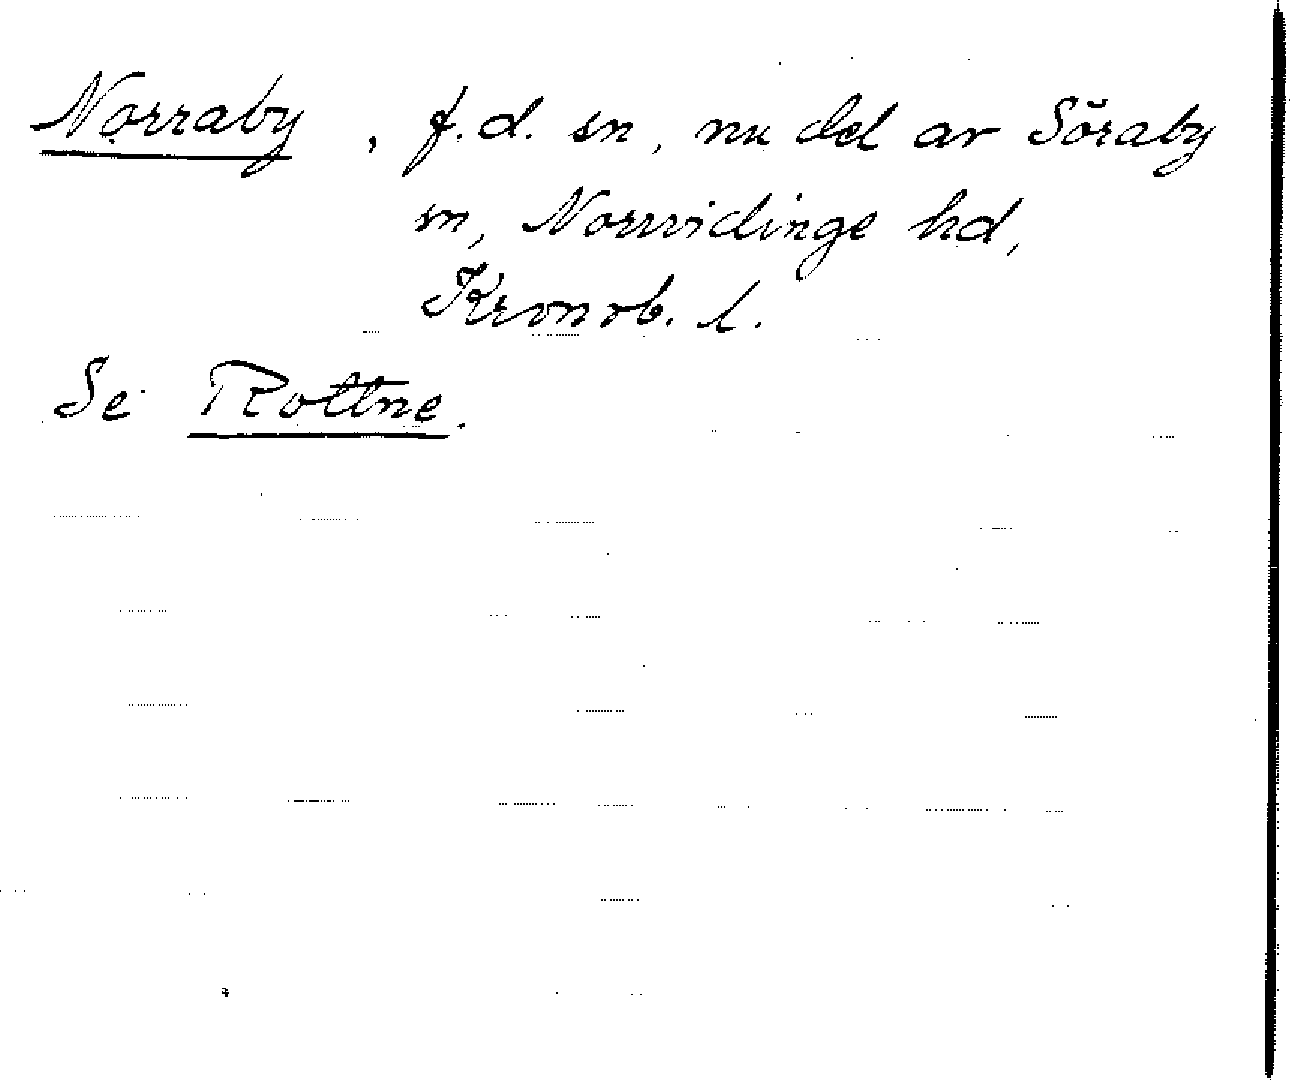 Norraby, f.d. sn, nu del av Söraby
sn, Norrvidinge hd,
Kronob. l.
Se Rottne.